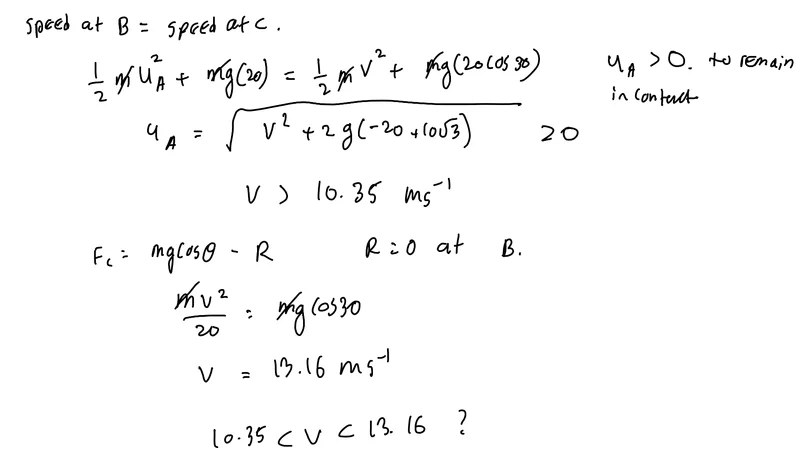 speed at B = speed at C.
½ m u_A² + mg(20) = ½ m v² + mg(20cos30)
u_A > 0. to remain in contact
u_A = √(v² + 2g(-20 + 10√3)) ≥ 0
v > 10.35 ms⁻¹
F_c = mgcosθ - R R = 0 at B.
mv²/20 = mgcos30
v = 13.16 ms⁻¹
10.35 < v < 13.16 ?